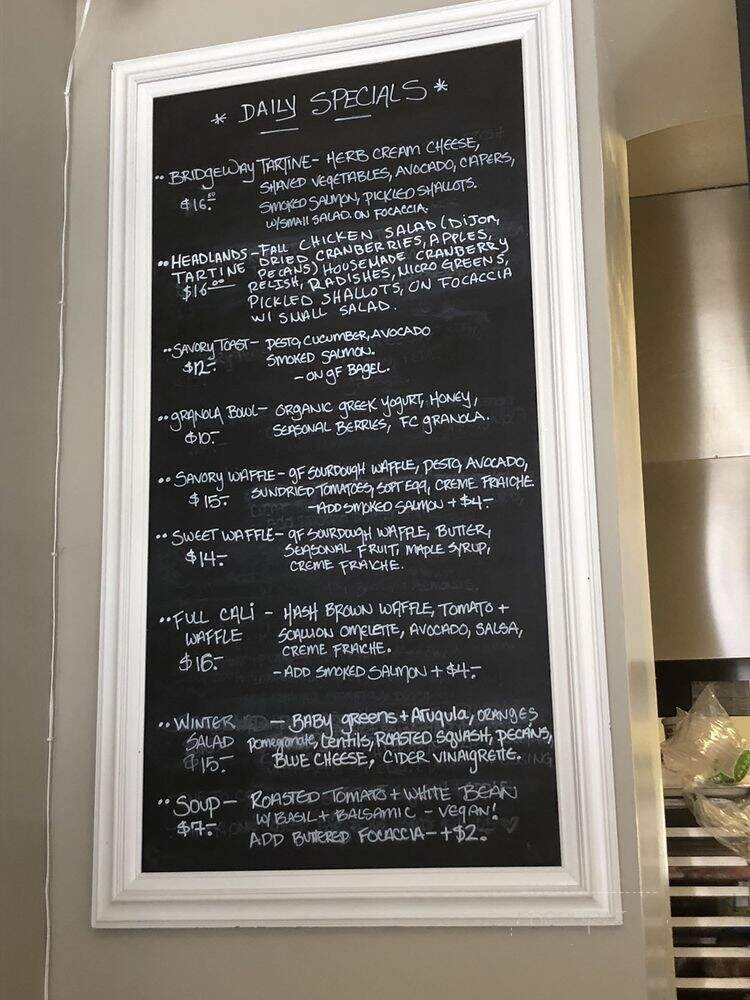 * DAILY SPECIALS *
•• BRIDGEWAY TARTINE - HERB CREAM CHEESE,
SHAVED VEGETABLES, AVOCADO, CAPERS,
$16.00 SMOKED SALMON, PICKLED SHALLOTS.
W/SMALL SALAD. ON FOCACCIA.
•• HEADLANDS - FALL CHICKEN SALAD (DIJON,
TARTINE DRIED CRANBERRIES, APPLES,
$16.00 PECANS) HOUSEMADE CRANBERRY
RELISH, RADISHES, MICRO GREENS,
PICKLED SHALLOTS, ON FOCACCIA
W/ SMALL SALAD.
•• SAVORY TOAST - PESTO, CUCUMBER, AVOCADO
$12.- SMOKED SALMON.
- ON GF BAGEL.
•• GRANOLA BOWL - ORGANIC GREEK YOGURT, HONEY,
$10.- SEASONAL BERRIES, FC GRANOLA.
•• SAVORY WAFFLE - GF SOURDOUGH WAFFLE, PESTO, AVOCADO,
$15.- SUNDRIED TOMATOES, SOFT EGG, CREME FRAICHE
- ADD SMOKED SALMON + $4.-
•• SWEET WAFFLE - GF SOURDOUGH WAFFLE, BUTTER,
$14.- SEASONAL FRUIT, MAPLE SYRUP,
CREME FRAICHE.
•• FULL CALI - HASH BROWN WAFFLE, TOMATO +
WAFFLE SCALLION OMELETTE, AVOCADO, SALSA,
$16.- CREME FRAICHE.
- ADD SMOKED SALMON + $4.-
•• WINTER - BABY greens + Arugula, ORANGES
SALAD pomegranate, Lentils, ROASTED SQUASH, PECANS,
$15.- BLUE CHEESE, CIDER VINAIGRETTE.
•• SOUP - ROASTED TOMATO + WHITE BEAN
$7.- W/ BASIL + BALSAMIC - VEGAN!
ADD BUTTERED FOCACCIA - +$2.